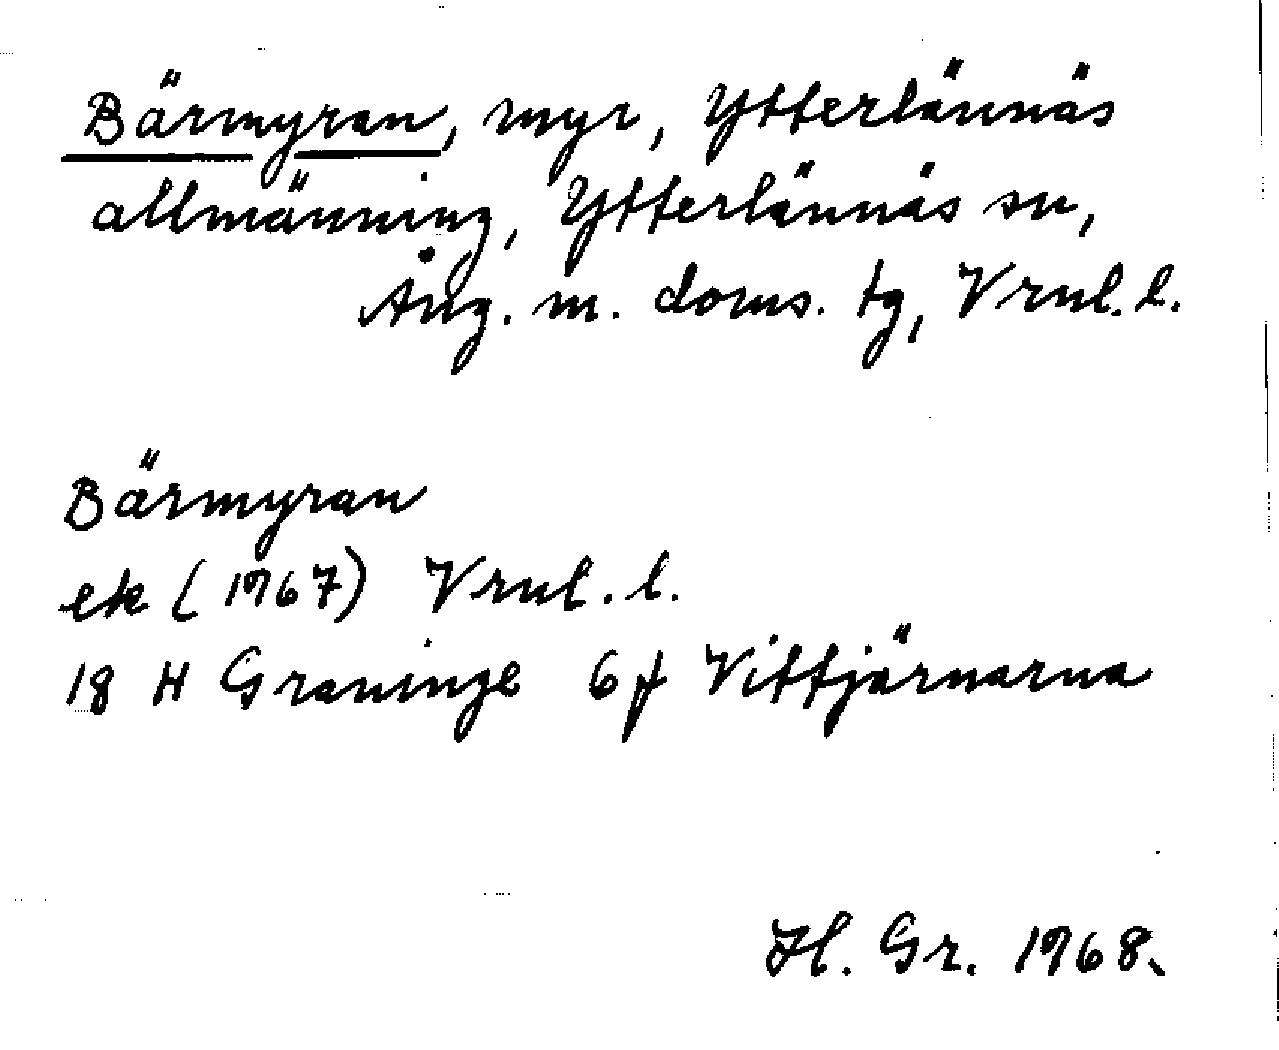 Bärmyran, myr, Ytterlännäs
allmänning, Ytterlännäs sn,
Ång. m. doms. tg, Vrnl. l.
Bärmyran
ek (1967) Vrnl. l.
18 H Graninge 6 f Vittjärnarna
Hl. Gr. 1968.